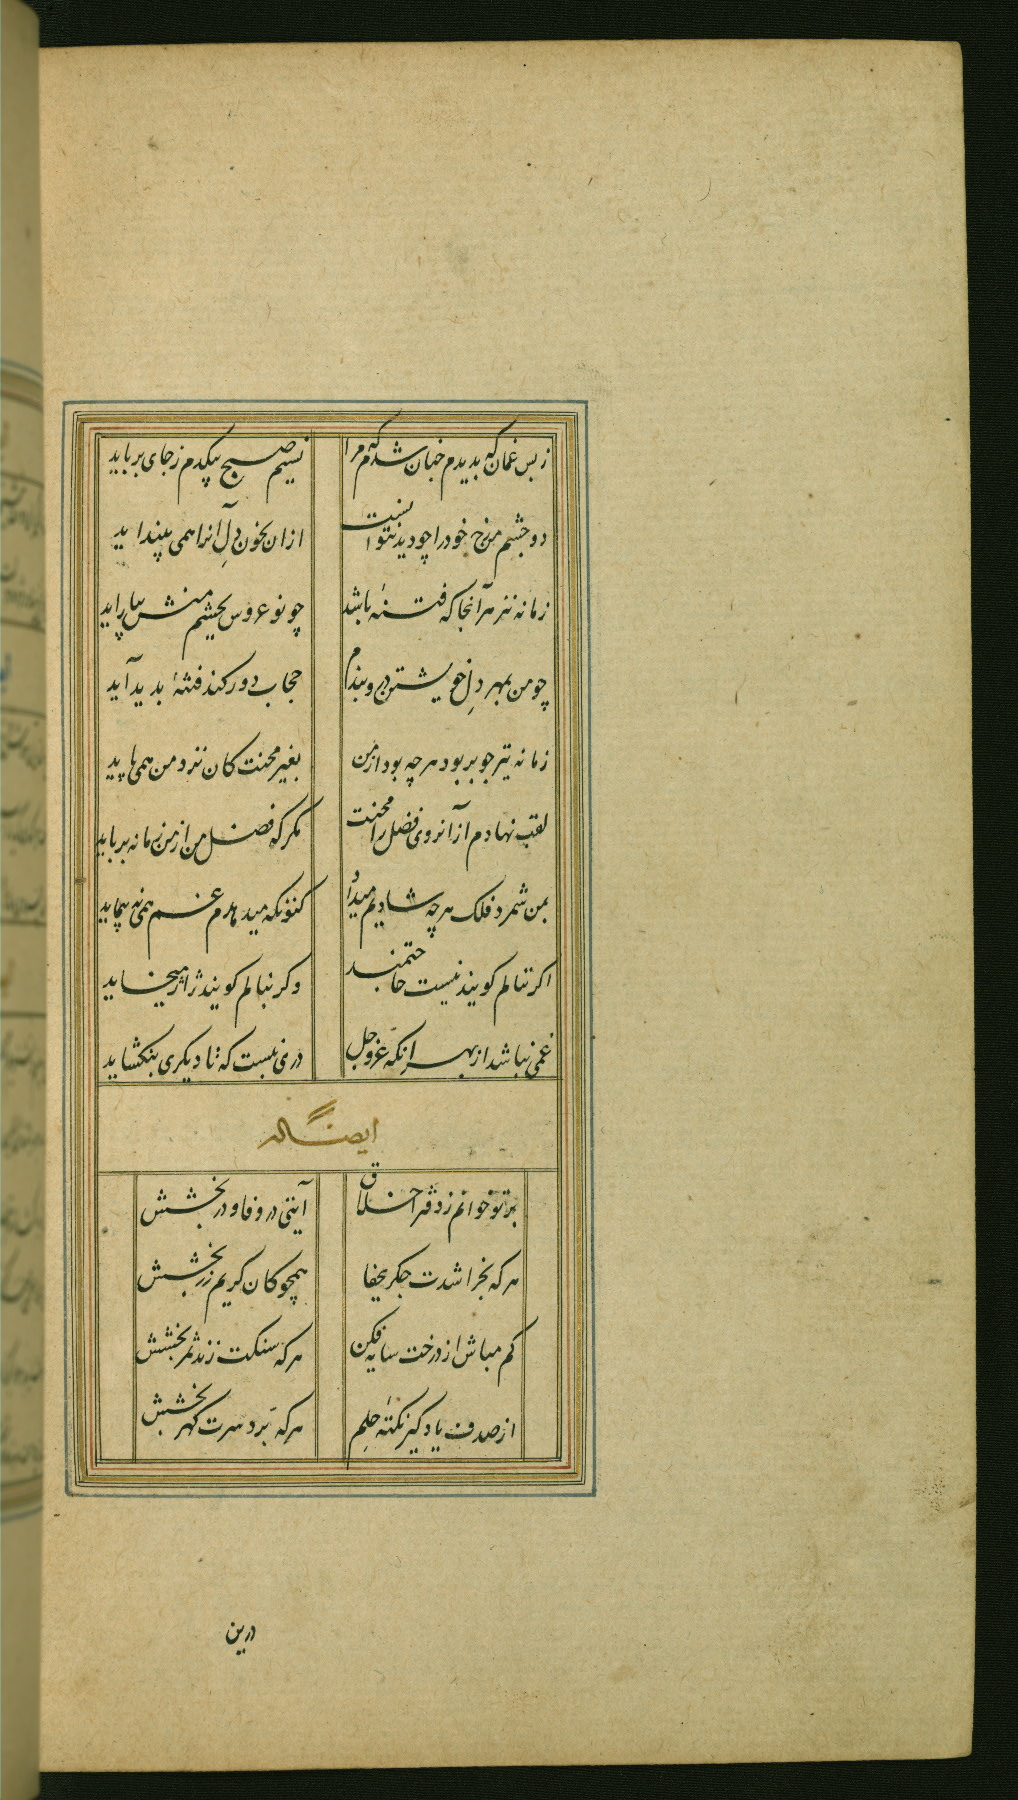 ز بس غمان که بدیدم چنان شدم که مرا نسیم صبح بیکدم ز جای برباید
دو چشم من رخ خود را چو دید نتوانست از آن بخون دل آنرا همی بینداید
زمانه نزهر آنجا که فتنهٔ باشد چو نو عروس بچشم منش بیاراید
چو من بمهر دل خویشتن درو بندم حجاب دور کند فتنهٔ بدید آید
زمانه نیز جو بربود هر چه بود از من بغیر محنت کان نزد من همی پاید
لقب نهادم از آنروی فضل را محنت مکر که فضل من از من زمانه برباید
بمن شمرد فلک هرچه شادیم میداد کنون که میدهدم غم همی نه پیماید
اکر ننالم کویند نیست حاجتمند وکر بنالم کویند ژاژ میخاید
غمی نباشد از بهر آنکه عز و جل دری نبست که تا دیکری بنکشاید
ایضاً له
بر تو خوانم ز دفتر اخلاق آیتی در وفا و در بخشش
هرکه بخراشدت جکر بجفا همچو کان کریم زر بخشش
کم مباش از درخت سایه فکن هرکه سنکت زند ثمر بخشش
از صدف یاد کیر نکتهٔ حلم هرکه برد سرت کهر بخشش
درین